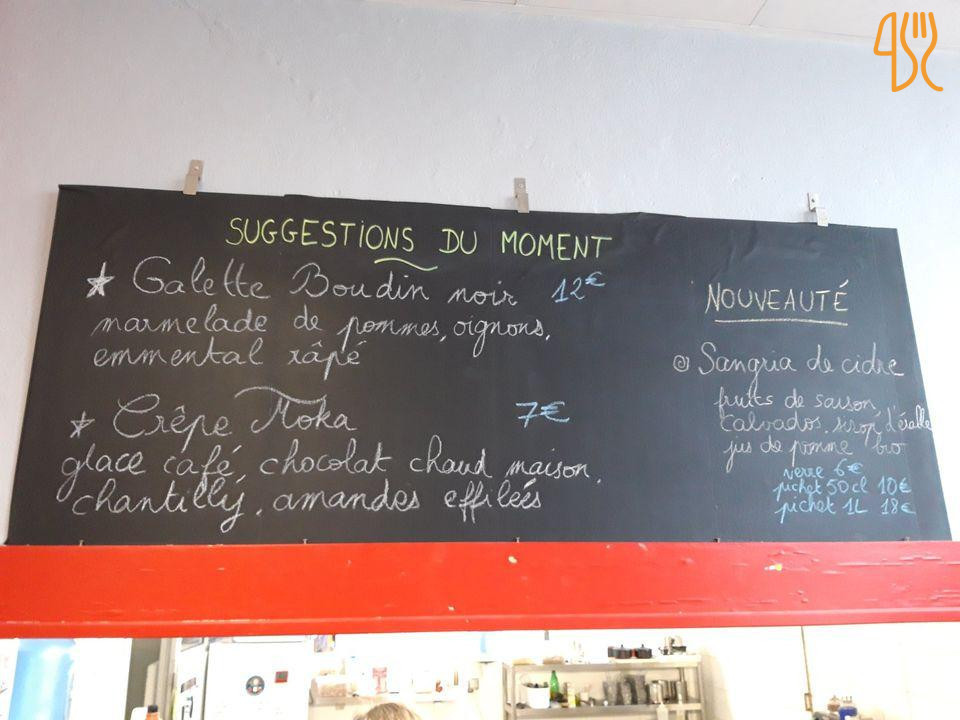 SUGGESTIONS DU MOMENT
Galette Boudin noir 12€
marmelade de pommes, oignons,
emmental râpé
Crêpe Moka 7€
glace café, chocolat chaud maison,
chantilly, amandes effileés
NOUVEAUTÉ
Sangria de cidre
fruits de saison,
calvados, sirop d'érable
jus de pomme bio
verre 6€
pichet 50cl 10€
pichet 1L 18€